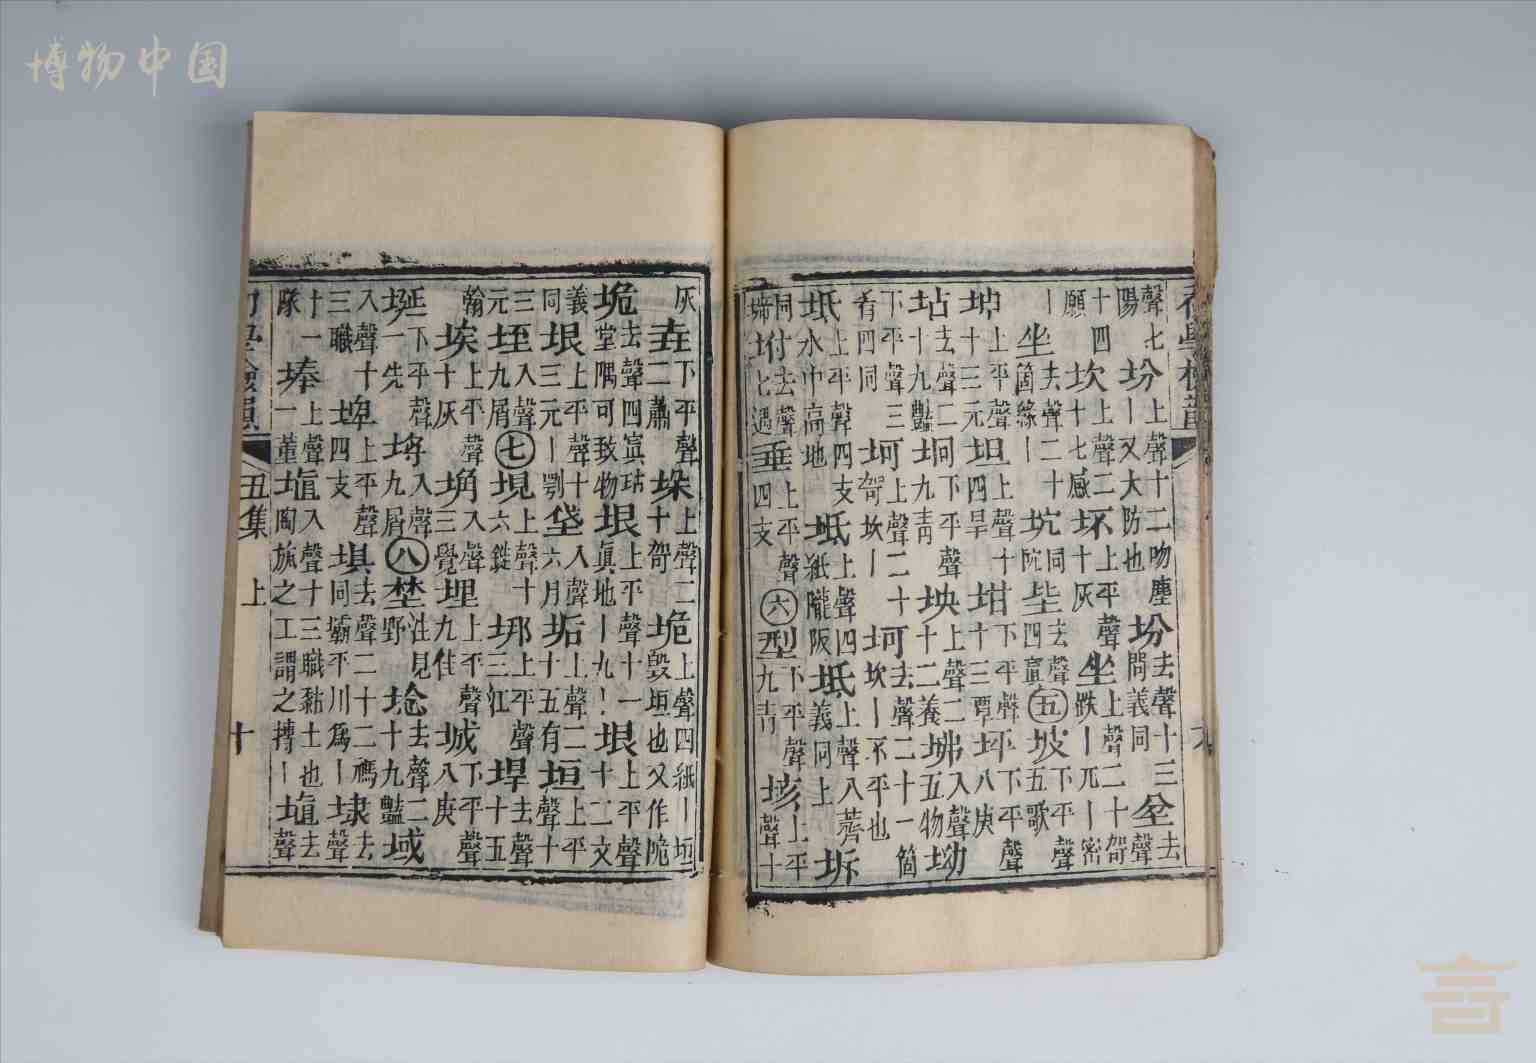 博物中国
聲七陽坋上聲十二吻塵丨又大防也坋去聲十三問義同坌去聲
十四願坎上聲二十七感坏上平聲十灰坐上聲二十哿跌丨兀丨密
丨坐去聲二十箇緣丨坑同阬坒去聲四寘五坡下平聲五歌
坤上平聲十三元坦上聲十四旱坩下平聲十三覃坪下平聲八庚
坫去聲二十九豔坰下平聲九青坱上聲二十二養坲入聲五物坳
下平聲三肴四同坷上聲二十哿坎丨坷去聲二十一箇坎丨不平也
坻上平聲四支水中高地坻上聲四紙隴阪坻上聲八薺義同上坼
同坿去聲七遇垂上平聲四支六型下平聲九青垓上平聲十
灰垚下平聲二蕭垛上聲二十哿垝上聲四紙丨垣毀垣也又作陒
垝去聲四寘坫堂隅可致物垠上平聲十一眞地丨九丨垠上平聲十二文
義同垠上平聲十三元丨鄂垡入聲六月垢上聲二十五有垣上平聲十
三元垤入聲九屑七垷上聲十六銑垹上平聲三江垾去聲十五
翰埃上平聲十灰埆入聲三覺埋上平聲九佳城下平聲八庚
埏下平聲一先埒入聲九屑八埜注見野埝去聲二十九豔域
入聲十三職埤上平聲四支埧去聲二十二禡同壩平川爲丨埭去聲
十一隊埲上聲一董埴入聲十三職黏土也陶旊之工謂之摶丨埴去聲
丑集 上 十